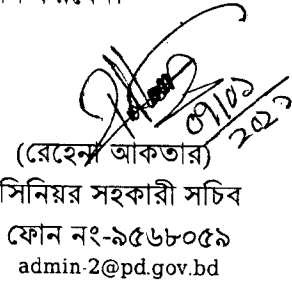 ০৭/০১
২০২১
(রেহেনা আকতার)
সিনিয়র সহকারী সচিব
ফোন নং-৯৫৬৮০৫৯
admin-2@pd.gov.bd